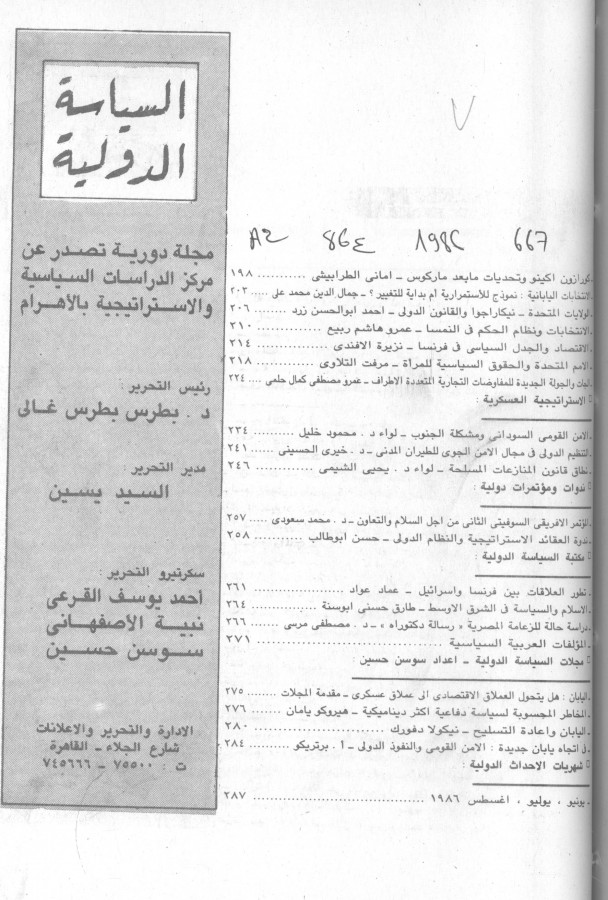 السياسة
الدولية
مجلة دورية تصدر عن
مركز الدراسات السياسية
والاستراتيجية بالأهرام
رئيس التحرير :
د . بطرس بطرس غالى
مدير التحرير :
السيد يسين
سكرتيرو التحرير :
أحمد يوسف القرعى
نبية الأصفهانى
سوسن حسين
الادارة والتحرير والاعلانات
شارع الجلاء ـ القاهرة
ت : ٧٥٥٠٠ ـ ٧٤٥٦٦٦
667 1986 86٤ A2
كورازون اكينو وتحديات مابعد ماركوس ـ امانى الطرابيشى ........... ١٩٨
الانتخابات اليابانية : نموذج للأستمرارية أم بداية للتغيير ؟ ـ جمال الدين محمد على .... ٢٠٣
الولايات المتحدة ـ نيكاراجوا والقانون الدولى ـ احمد ابوالحسن زرد ........ ٢٠٦
الانتخابات ونظام الحكم فى النمسا ـ عمرو هاشم ربيع ............... ٢١٠
الاقتصاد والجدل السياسى فى فرنسا ـ نزيرة الافندى ............... ٢١٤
الامم المتحدة والحقوق السياسية للمرأة ـ مرفت التلاوى ............ ٢١٨
الجات والجولة الجديدة للمفاوضات التجارية المتعددة الاطراف ـ عمرو مصطفى كمال حلمى .... ٢٢٤
الاستراتيجية العسكرية :
الامن القومى السودانى ومشكلة الجنوب ـ لواء د . محمود خليل .......... ٢٣٤
التنظيم الدولى فى مجال الامن الجوى للطيران المدنى ـ د . خيرى الحسينى ..... ٢٤١
نطاق قانون المنازعات المسلحة ـ لواء د . يحيى الشيمى ............ ٢٤٦
ندوات ومؤتمرات دولية :
المؤتمر الافريقى السوفيتى الثانى من اجل السلام والتعاون ـ د . محمد سعودى ..... ٢٥٧
ندوة العقائد الاستراتيجية والنظام الدولى ـ حسن ابوطالب .......... ٢٥٨
مكتبة السياسة الدولية :
تطور العلاقات بين فرنسا واسرائيل ـ عماد عواد .................. ٢٦١
الاسلام والسياسة فى الشرق الاوسط ـ طارق حسنى ابوسنة ........... ٢٦٤
دراسة حالة للزعامة المصرية « رسالة دكتوراه » ـ د . مصطفى مرسى ....... ٢٦٦
المؤلفات العربية السياسية ............................ ٢٧١
مجلات السياسة الدولية ـ اعداد سوسن حسين :
اليابان : هل يتحول العملاق الاقتصادى الى عملاق عسكرى ـ مقدمة المجلات ........ ٢٧٥
المخاطر المحسوبة لسياسة دفاعية اكثر ديناميكية ـ هيروكو يامان ........ ٢٧٦
اليابان واعادة التسليح ـ نيكولا دفورك ..................... ٢٨٠
فى اتجاه يابان جديدة : الامن القومى والنفوذ الدولى ـ أ . برتريكو ......... ٢٨٤
شهريات الاحداث الدولية :
يونيو ، يوليو ، اغسطس ١٩٨٦ ........................... ٢٨٧